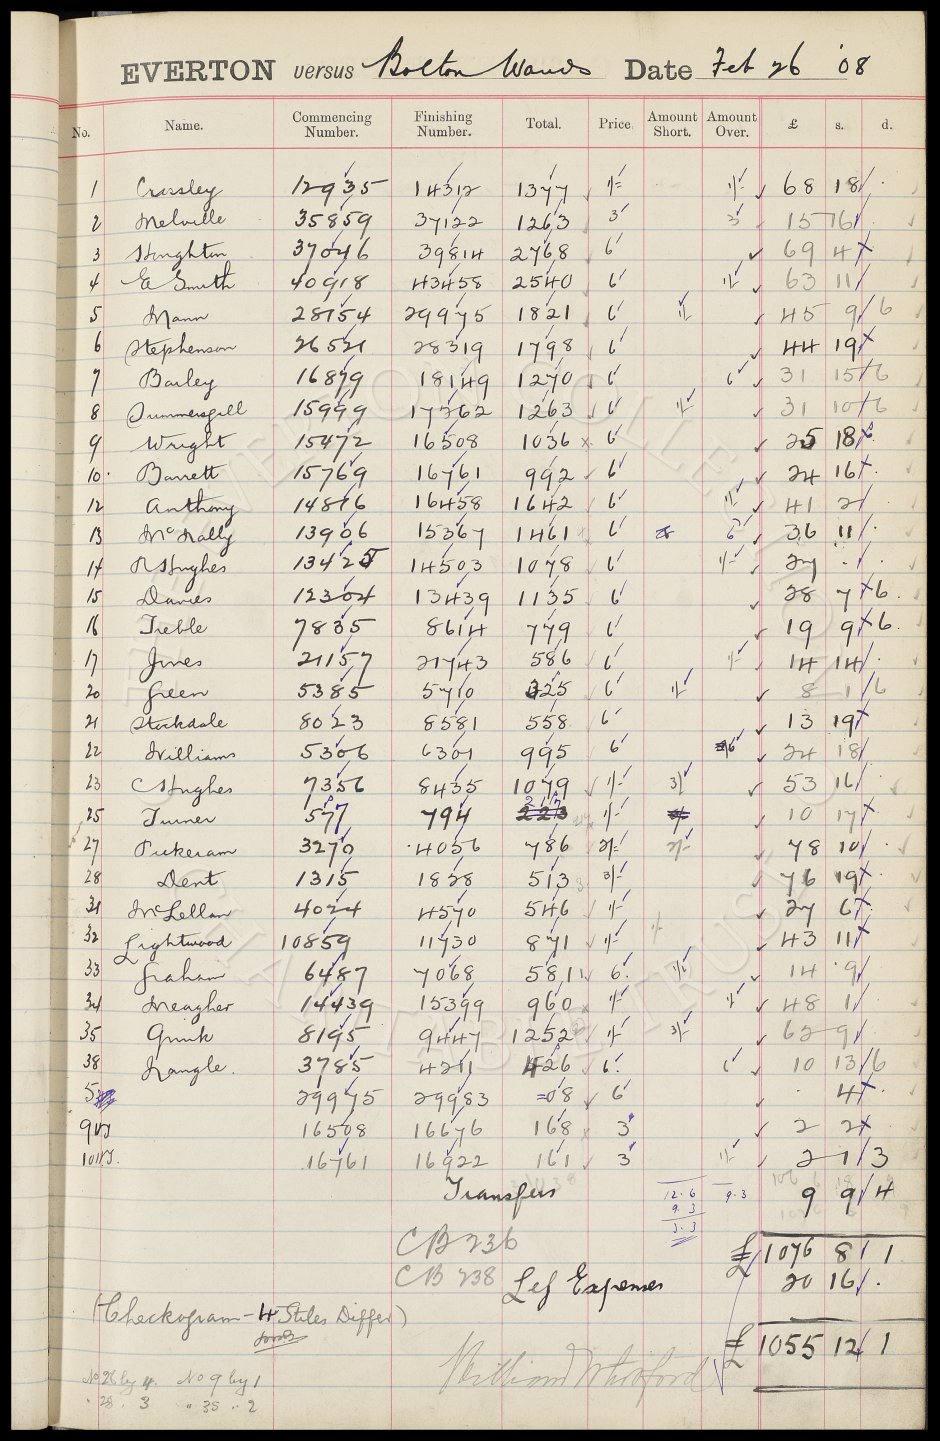 EVERTON versus Bolton Wands Date Feb 26 '08
No. Name. Commencing Number. Finishing Number. Total. Price. Amount Short. Amount Over. £ s. d.
1 Crossley 12935 14312 1377 1/= 1/= 68 18 .
2 Melville 35859 37122 1263 3 3 15 16
3 Houghton 37046 39814 2768 6 69 4
4 E Smith 40918 43458 2540 6 1/- 63 11
5 Mann 28154 29975 1821 6 1/- 45 9 6
6 Stephenson 26521 28319 1798 6 44 19
7 Bailey 16879 18149 1270 6 6 31 15 6
8 Summersgill 15999 17262 1263 6 1/- 31 10 6
9 Wright 15472 16508 1036 6 25 18
10 Barrett 15769 16761 992 6 24 16 .
12 Anthony 14816 16458 1642 6 1/- 41 2
13 McNally 13906 15367 1461 6 6 36 11 .
14 R Hughes 13425 14503 1078 6 1/- 27 . .
15 Davies 12304 13439 1135 6 28 7 6
16 Treble 7835 8614 779 6 19 9 6
17 Jones 21157 21743 586 6 1/- 14 14 .
20 Green 5385 5710 325 6 1/- 8 1 6
21 Stockdale 8023 8581 558 6 13 19
22 Williams 5306 6301 995 6 6 24 18
23 C Hughes 7356 8435 1079 1/- 3/- 53 16
217
25 Turner 577 794 223 1/- 10 17
27 Pickeram 3270 4056 786 2/- 2/- 78 10 .
28 Dent 1315 1828 513 3/- 76 19 .
31 McLellan 4024 4570 546 1/- 27 6
32 Lightwood 10859 11730 871 1/- 43 11
33 Graham 6487 7068 581 6 1/- 14 9
34 Meagher 14439 15399 960 1/- 1/- 48 1
35 Quirk 8195 9447 1252 1/- 3/- 62 9
38 Nangle. 3785 4211 426 6 6 10 13 6
5 29975 29983 =08 6 4
9 16508 16676 168 3 2 2
10 16761 16922 161 3 1/- 2 1 3
Transfers 12.6 9.3 9 9 4
9.3
3.3
CB 236 £ 1076 8 1
CB 238 Less Expenses 20 16 .
(Checkogram - 4 Stiles Differ) £ 1055 12 1
William Whitford
No 26 by 4. No 9 by 1
" 28 . 3 " 35 .. 2